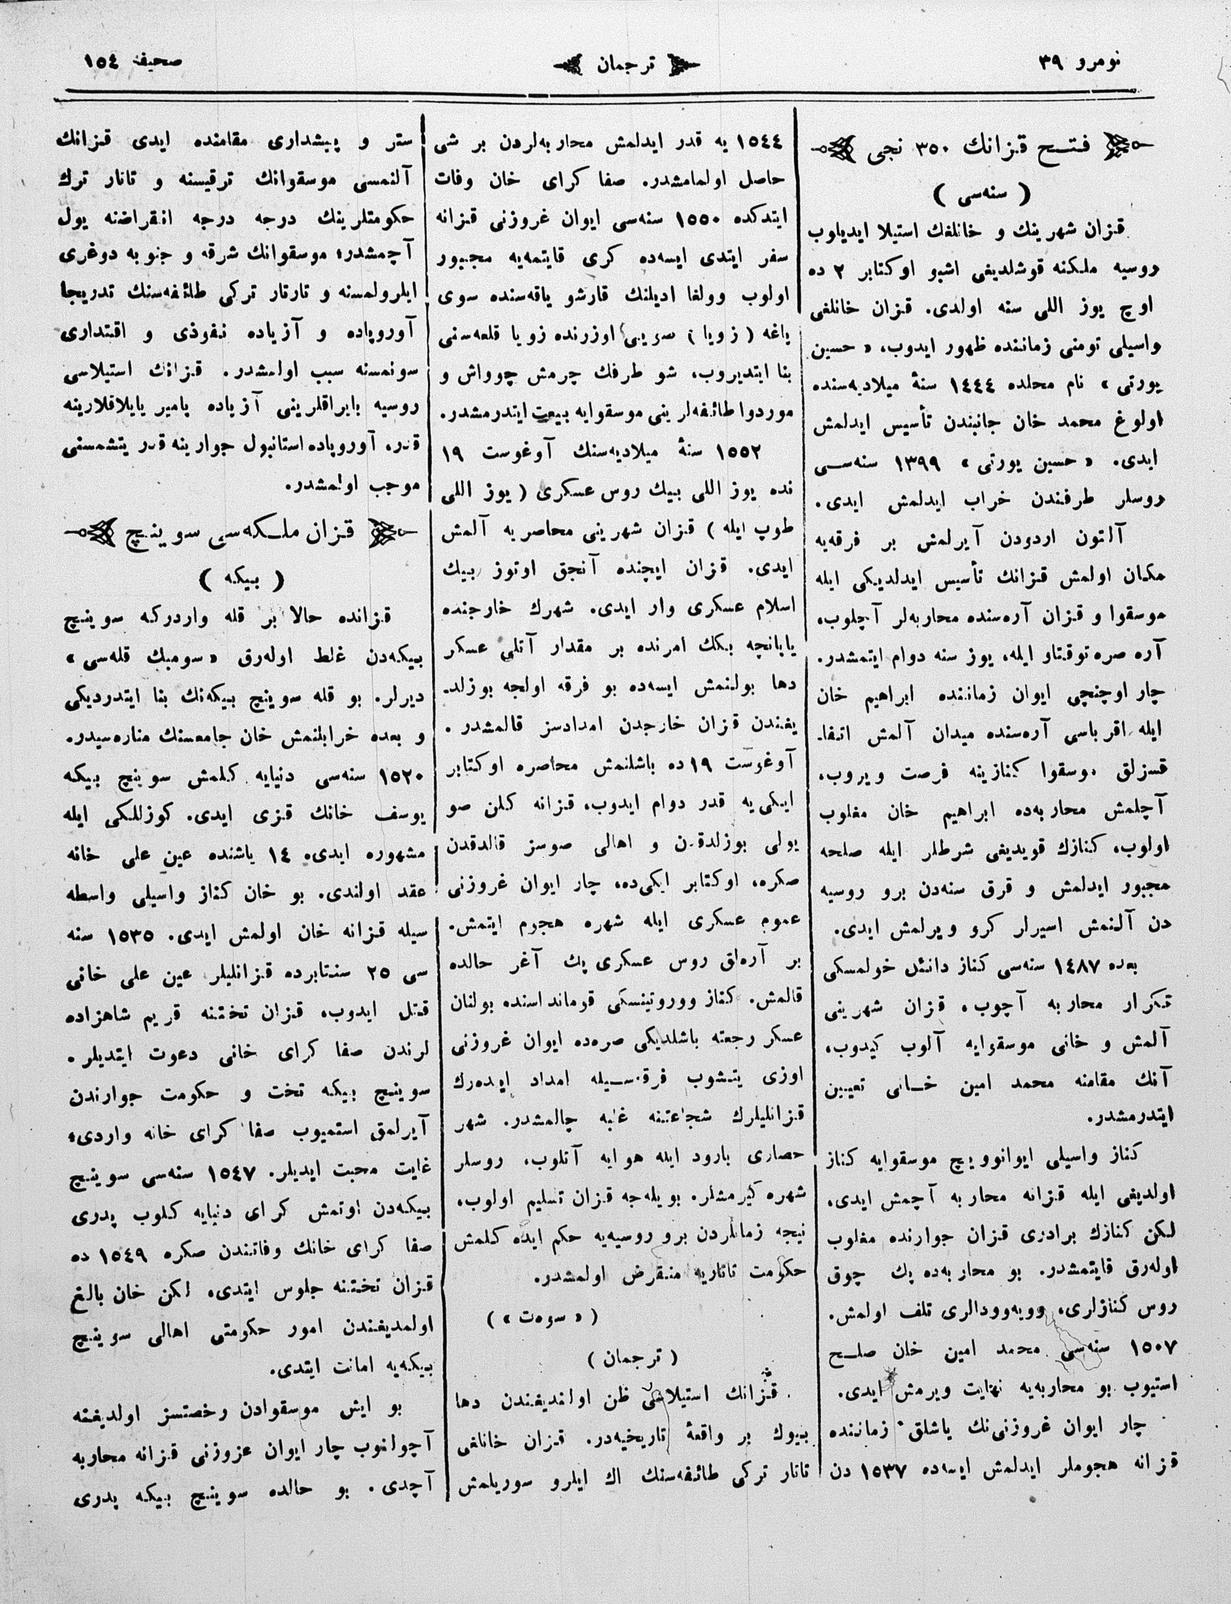 نومرو ٣٩
ترجمان
صحیفه ١٥٤
فتح قزانك ٣٥٠ نجی
( سنه‌سی )
قزان شهرینك و خانلغك استیلا ایدیلوب
روسیه ملكنه قوشلدیغی اشبو اوكتابر ٢ ده
اوچ یوز اللی سنه اولدی. قزان خانلغی
واسیلی تومنی زماننده ظهور ایدوب، « حسین
یورتی » نام محلده ١٤٤٤ سنهٔ میلادیه‌سنده
اولوغ محمد خان جانبندن تأسیس ایدلمش
ایدی. « حسین یورتی » ١٣٩٩ سنه‌سی
روسلر طرفندن خراب ایدلمش ایدی.
آلتون اردودن آیرلمش بر فرقه‌یه
مكان اولمش قزانك تأسیس ایدلدیكی ایله
موسقوا و قزان آره‌سنده محاربه‌لر آچلوب،
آره صره توقتاو ایله، یوز سنه دوام ایتمشدر.
چار اوچنچی ایوان زماننده ابراهیم خان
ایله اقرباسی آره‌سنده میدان آلمش اتفا-
قسزلق موسقوا كنازینه فرصت ویروب،
آچلمش محاربه‌ده ابراهیم خان مغلوب
اولوب، كنازك قویدیغی شرطلر ایله صلحه
مجبور ایدلمش و قرق سنه‌دن برو روسیه
دن آلنمش اسیرلر كرو ویرلمش ایدی.
بعده ١٤٨٧ سنه‌سی كناز دانئل خولمسكی
تكرار محاربه آچوب، قزان شهرینی
آلمش و خانی موسقوایه آلوب كیدوب،
آنك مقامنه محمد امین خانی تعیین
ایتدرمشدر.
كناز واسیلی ایوانوویچ موسقوایه كناز
اولدیغی ایله قزانه محاربه آچمش ایدی،
لكن كنازك برادری قزان جوارنده مغلوب
اوله‌رق قایتمشدر. بو محاربه‌ده پك چوق
روس كنازلری، وویه‌وودالری تلف اولمش.
١٥٠٧ سنه‌سی محمد امین خان صلح
استیوب بو محاربه‌یه نهایت ویرمش ایدی.
چار ایوان غروزنی‌نك یاشلق زماننده
قزانه هجوملر ایدلمش ایسه‌ده ١٥٣٧ دن
١٥٤٤ یه قدر ایدلمش محاربه‌لردن بر شی
حاصل اولمامشدر. صفا كرای خان وفات
ایتدكده ١٥٥٠ سنه‌سی ایوان غروزنی قزانه
سفر ایتدی ایسه‌ده كری قایتمه‌یه مجبور
اولوب وولغا ادیلنك قارشو یاقه‌سنده سوی
یاغه ( زویا ) اوزرنده زویا قلعه‌سنی
بنا ایتدیروب، شو طرفك چرمش چوواش و
موردوا طائفه‌لرینی موسقوایه بیعت ایتدرمشدر.
١٥٥٢ سنهٔ میلادیه‌سنك آوغوست ١٩
نده یوز اللی بیك روس عسكری ( یوز اللی
طوپ ایله ) قزان شهرینی محاصره‌یه آلمش
ایدی. قزان ایچنده آنجق اوتوز بیك
اسلام عسكری وار ایدی. شهرك خارجنده
یاپانچه بكك امرنده بر مقدار آتلی عسكر
دها بولنمش ایسه‌ده بو فرقه اولجه بوزلد-
یغندن قزان خارجدن امدادسز قالمشدر.
آوغوست ١٩ ده باشلنمش محاصره اوكتابر
ایكی‌یه قدر دوام ایدوب، قزانه كلن صو
یولی بوزلدقدن و اهالی صوسز قالدقدن
صكره، اوكتابر ایكی‌ده، چار ایوان غروزنی
عموم عسكری ایله شهره هجوم ایتمش.
بر آره‌لق روس عسكری پك آغر حالده
قالمش. كناز ووروتینسكی قوماندا‌سنده بولنان
عسكر رجعته باشلدیكی صره‌ده ایوان غروزنی
اوزی یتشوب فرقه‌سیله امداد ایده‌رك
قزانلیلرك شجاعتنه غلبه چالمشدر. شهر
حصاری بارود ایله هوایه آتلوب، روسلر
شهره كیرمشلر. بویله‌جه قزان تسلیم اولوب،
نیچه زمانلردن برو روسیه‌یه حكم ایده كلمش
حكومت تاتاریه منقرض اولمشدر.
( « سوه‌ت » )
( ترجمان )
قزانك استیلاسی ظن اولندیغندن دها
بیوك بر واقعهٔ تاریخیه‌در. قزان خانلغی
تاتار تركی طائفه‌سنك اك ایلرو سوریلمش
ستر و پیشداری مقامنده ایدی قزانك
آلنمسی موسقوانك ترقیسنه و تاتار ترك
حكومتلرینك درجه درجه انقراضنه یول
آچمشدر؛ موسقوانك شرقه و جنوبه دوغری
ایلرولمسنه و تارتار تركی طائفه‌سنك تدریجا
آوروپاده و آزیاده نفوذی و اقتداری
سونمسنه سبب اولمشدر. قزانك استیلاسی
روسیه بایراقلرینی آزیاده پامیر یایلاقلارینه
قدر، آوروپاده استانبول جوارینه قدر یتشمسنی
موجب اولمشدر.
قزان ملكه‌سی سوینچ
( بیكه )
قزانده حالا بر قله واردركه سوینچ
بیكه‌دن غلط اوله‌رق « سومبك قله‌سی »
دیرلر. بو قله سوینچ بیكه‌نك بنا ایتدردیكی
و بعده خرابلنمش خان جامعسنك مناره‌سیدر.
١٥٢٠ سنه‌سی دنیایه كلمش سوینچ بیكه
یوسف خانك قزی ایدی. كوزللكی ایله
مشهوره ایدی. ١٤ یاشنده عین علی خانه
عقد اولندی. بو خان كناز واسیلی واسطه
سیله قزانه خان اولمش ایدی. ١٥٣٥ سنه
سی ٢٥ سنتابرده قزانلیلر عین علی خانی
قتل ایدوب، قزان تختنه قریم شاهزاده
لرندن صفا كرای خانی دعوت ایتدیلر.
سوینچ بیكه تخت و حكومت جوارندن
آیرلمق استمیوب صفا كرای خانه واردی،
غایت محبت ایدیلر. ١٥٤٧ سنه‌سی سوینچ
بیكه‌دن اوتمش كرای دنیایه كلوب پدری
صفا كرای خانك وفاتندن صكره ١٥٤٩ ده
قزان تختنه جلوس ایتدی، لكن خان بالغ
اولمدیغندن امور حكومتی اهالی سوینچ
بیكه‌یه امانت ایتدی.
بو ایش موسقوادن رخصتسز اولدیغنه
آچولنوب چار ایوان غروزنی قزانه محاربه
آچدی. بو حالده سوینچ بیكه پدری